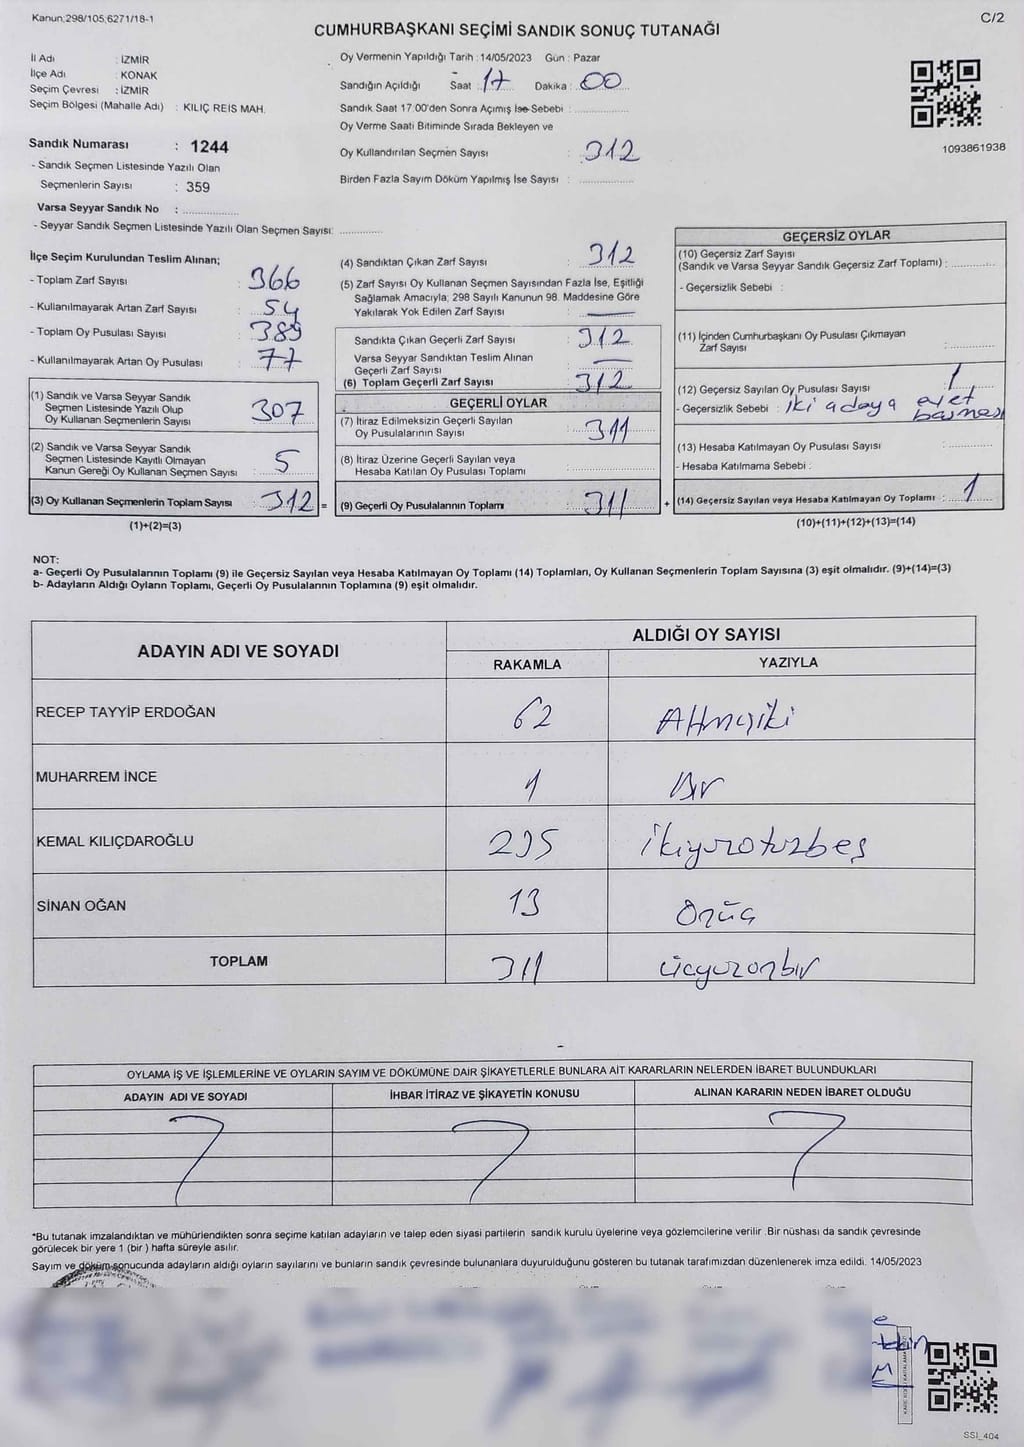 Kanun;298/105,6271/18-1
C/2
CUMHURBAŞKANI SEÇİMİ SANDIK SONUÇ TUTANAĞI
İl Adı : İZMİR
İlçe Adı : KONAK
Seçim Çevresi : İZMİR
Seçim Bölgesi (Mahalle Adı) : KILIÇ REIS MAH.
Sandık Numarası : 1244
- Sandık Seçmen Listesinde Yazılı Olan
Seçmenlerin Sayısı : 359
Varsa Seyyar Sandık No : ..................
- Seyyar Sandık Seçmen Listesinde Yazılı Olan Seçmen Sayısı: .............
Oy Vermenin Yapıldığı Tarih : 14/05/2023 Gün : Pazar
Sandığın Açıldığı Saat : 17 Dakika : 00
Sandık Saat 17.00'den Sonra Açımış İse Sebebi : ...............
Oy Verme Saati Bitiminde Sırada Bekleyen ve
Oy Kullandırılan Seçmen Sayısı : 312
Birden Fazla Sayım Döküm Yapılmış İse Sayısı : ...............
1093861938
İlçe Seçim Kurulundan Teslim Alınan;
- Toplam Zarf Sayısı : 366
- Kullanılmayarak Artan Zarf Sayısı : 54
- Toplam Oy Pusulası Sayısı : 389
- Kullanılmayarak Artan Oy Pusulası : 77
(1) Sandık ve Varsa Seyyar Sandık
Seçmen Listesinde Yazılı Olup
Oy Kullanan Seçmenlerin Sayısı : 307
(2) Sandık ve Varsa Seyyar Sandık
Seçmen Listesinde Kayıtlı Olmayan
Kanun Gereği Oy Kullanan Seçmen Sayısı : 5
(3) Oy Kullanan Seçmenlerin Toplam Sayısı : 312 =
(1)+(2)=(3)
(4) Sandıktan Çıkan Zarf Sayısı : 312
(5) Zarf Sayısı Oy Kullanan Seçmen Sayısından Fazla İse, Eşitliği
Sağlamak Amacıyla; 298 Sayılı Kanunun 98. Maddesine Göre
Yakılarak Yok Edilen Zarf Sayısı : —
Sandıkta Çıkan Geçerli Zarf Sayısı : 312
Varsa Seyyar Sandıktan Teslim Alınan
Geçerli Zarf Sayısı : —
(6) Toplam Geçerli Zarf Sayısı : 312
GEÇERLİ OYLAR
(7) İtiraz Edilmeksizin Geçerli Sayılan
Oy Pusulalarının Sayısı : 311
(8) İtiraz Üzerine Geçerli Sayılan veya
Hesaba Katılan Oy Pusulası Toplamı : ...............
(9) Geçerli Oy Pusulalarının Toplamı : 311 +
GEÇERSİZ OYLAR
(10) Geçersiz Zarf Sayısı
(Sandık ve Varsa Seyyar Sandık Geçersiz Zarf Toplamı) : .............
- Geçersizlik Sebebi :
(11) İçinden Cumhurbaşkanı Oy Pusulası Çıkmayan
Zarf Sayısı : .............
(12) Geçersiz Sayılan Oy Pusulası Sayısı : 1
- Geçersizlik Sebebi : iki adaya evet
basması
(13) Hesaba Katılmayan Oy Pusulası Sayısı : .............
- Hesaba Katılmama Sebebi :
(14) Geçersiz Sayılan veya Hesaba Katılmayan Oy Toplamı : 1
(10)+(11)+(12)+(13)=(14)
NOT:
a- Geçerli Oy Pusulalarının Toplamı (9) ile Geçersiz Sayılan veya Hesaba Katılmayan Oy Toplamı (14) Toplamları, Oy Kullanan Seçmenlerin Toplam Sayısına (3) eşit olmalıdır. (9)+(14)=(3)
b- Adayların Aldığı Oyların Toplamı, Geçerli Oy Pusulalarının Toplamına (9) eşit olmalıdır.
ADAYIN ADI VE SOYADI ALDIĞI OY SAYISI
RAKAMLA YAZIYLA
RECEP TAYYİP ERDOĞAN 62 Altmışiki
MUHARREM İNCE 1 Bir
KEMAL KILIÇDAROĞLU 235 ikiyüzotuzbeş
SİNAN OĞAN 13 Onüç
TOPLAM 311 üçyüzonbir
OYLAMA İŞ VE İŞLEMLERİNE VE OYLARIN SAYIM VE DÖKÜMÜNE DAİR ŞİKAYETLERLE BUNLARA AİT KARARLARIN NELERDEN İBARET BULUNDUKLARI
ADAYIN ADI VE SOYADI İHBAR İTİRAZ VE ŞİKAYETİN KONUSU ALINAN KARARIN NEDEN İBARET OLDUĞU
*Bu tutanak imzalandıktan ve mühürlendikten sonra seçime katılan adayların ve talep eden siyasi partilerin sandık kurulu üyelerine veya gözlemcilerine verilir .Bir nüshası da sandık çevresinde
görülecek bir yere 1 (bir ) hafta süreyle asılır.
Sayım ve döküm sonucunda adayların aldığı oyların sayılarını ve bunların sandık çevresinde bulunanlara duyurulduğunu gösteren bu tutanak tarafımızdan düzenlenerek imza edildi. 14/05/2023
SSI_404